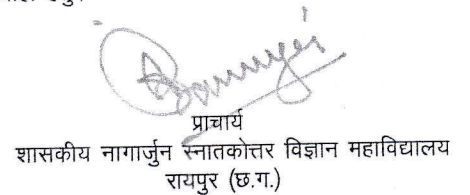 प्राचार्य
शासकीय नागार्जुन स्नातकोत्तर विज्ञान महाविद्यालय
रायपुर (छ.ग.)